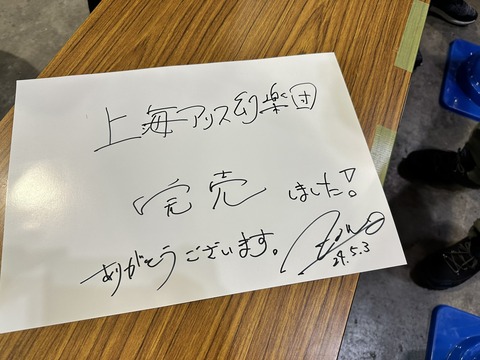 上海アリス幻樂団
完売 しました!
ありがとうございます。
ZUN
24.5.3